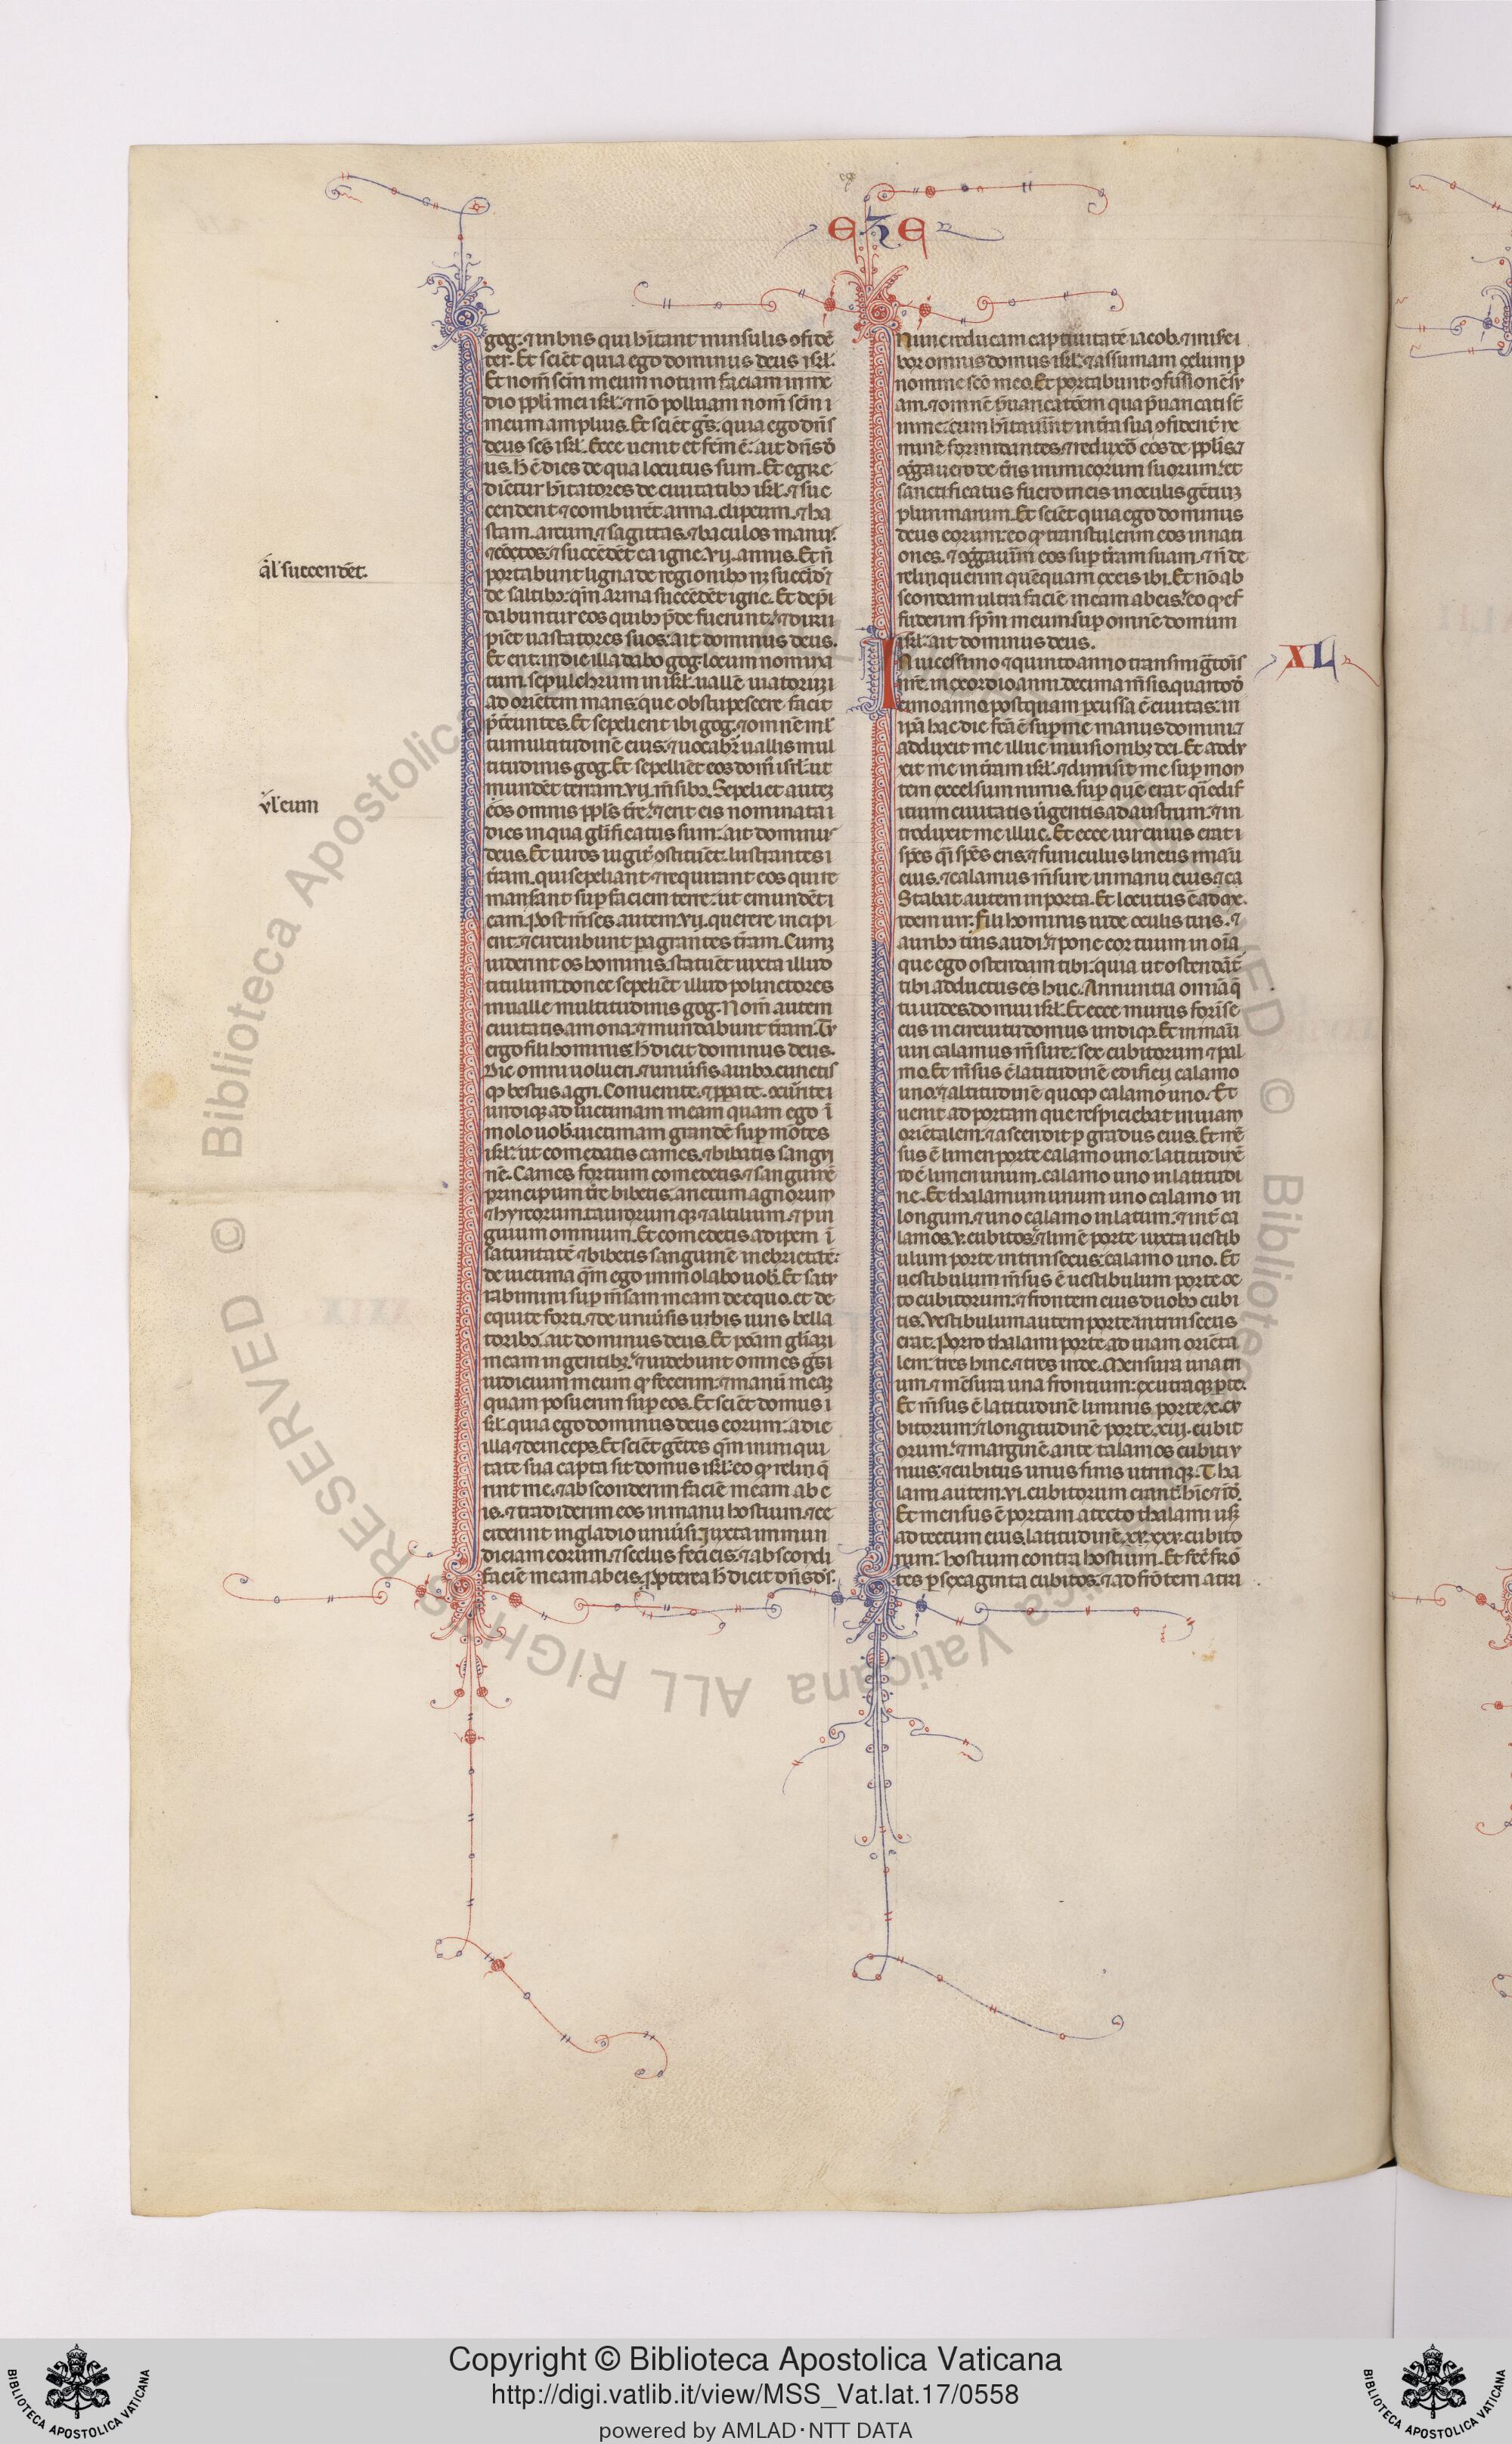 eze
gog. ⁊ in hiis qui hītant in insulis ꝯfidē
ter. Et sciēt quia ego dominus deus isrł.
Et nom̄ scm̄ meum notum faciam in me
dio ppłi mei isrł. ⁊ nō polluam nom̄ scm̄
meum amplius. Et sciēt gēs quia ego dn̄s
deus scs̄ isrł. Ecce uenit et fcm̄ ē ait dn̄s dē
us. h̄ ē dies de qua locutus sum. Et egre
dient̄ur hītatores de ciuitatibꝫ isrł. ⁊ suc
cendent ⁊ comburēt arma. clipeum. ⁊ ha
stam. arcum. ⁊ sagittas. ⁊ baculos manuū
⁊ cōctos. ⁊ succēdēt ea igne. vij. annis. Et n̄
portabunt ligna de regionibꝫ nꝫ succīdēt
de saltibꝫ. qm̄ arma succēdēt igne. Et dep̄
dabuntur eos quibꝫ p̄de fuerunt. ⁊ diru
piēt uastatores suos. ait dominus deus.
Et erit. in die illa dabo gog. locum nomina
tum. sepulchrum in isrł. uallē uiatorum
ad orientem maris. que obstupescere facit
p̄tēeuntes. Et sepelient ibi gog. ⁊ omnē ml̄
tumultitudinē eius. ⁊ uocabit̄ uallis mul
titudinis gog. Et sepelliēt eos dom̄ isrł. ut
mundēt terram. vij. m̄sibꝫ. Sepeliet autez
eos omnis ppłs tr̄e. ⁊ erit eis nominata
dies in qua glīficatus sum. ait dominus
deus. Et uiros iugit̄ ꝯstituēt. lustrantes
tr̄am. qui sepeliant ⁊ requirant eos qui re
mansant suꝑ faciem terre. ut emundēt
eam. post m̄ses. autem. vij. querere incipi
ent. ⁊ circuibunt ꝑagrantes tr̄am. Cumꝫ
uiderint os hominis. statuēt iuxta illud
titulum. donec sepeliēt illud polinctores
in ualle multitudinis gog. Nom̄ autem
ciuitatis amona. ⁊ mundabunt tr̄am. Tu
ergo fili hominis. h̄ dicit dominus deus.
Dic omni uolucri. ⁊ uniuīsis auibꝫ. cunctis
qꝫ bestiis agri. Conuenite. ⁊ ꝓꝑate. ꝯcurrite
undiqꝫ ad uictimam meam quam ego ī
molo uob̄. uictimam grandē suꝑ mōtes
isrł. ut comedatis carnes. ⁊ bibatis sangui
nē. Carnes fortium comedetis. ⁊ sanguinē
principum tr̄e bibetis. arietum agnorum
⁊ hyrcorum. taurorum qꝫ ⁊ altilium. ⁊ pin
guium omnium. Et comedetis adipem ī
saturitatē ⁊ bibetis sanguinē inebrietatē.
de uictima qm̄ ego immolabo uob̄. Et satu
rabimini suꝑ m̄sam meam de equo. et de
equite forti. ⁊ de uniuīsis uirbis uiris bella
toribꝫ. ait dominus deus. Et ponam glīam
meam in gentibꝫ. ⁊ uidebunt omnes gēs
iudicium meum qꝫ fecerim. ⁊ manū meaꝫ
quam posuerim suꝑ eos. Et sciēt domus i
srł. quia ego dominus deus eorum. a die
illa ⁊ deinceps. Et sciēt gētes qm̄ in iniqui
tate sua capta sit domus isrł. eo qꝫ relinq̄
rint me. ⁊ absconderim faciē meam ab e
is. ⁊ tradiderim eos in manu hostium. ⁊ ce
ciderint in gladio uniuīsi. iuxta inmun
diciam eorum. ⁊ scelus feci eis. ⁊ abscondi
faciē meam ab eis. ꝓpterea h̄ dicit dn̄s dē.
ał succendēt.
uł eum
Nunc reducam captiuitatē iacob. ⁊ misei
bor omnis domus isrł. ⁊ assumam çelum ꝓ
nomine sco̅ meo. Et portabunt ꝯfusionē su
am. ⁊ omnē p̄uaricatōem qua p̄uaricati st̄
in me. cum hītauīnt in tr̄a sua ꝯfident̄ ne
minē formidantes. ⁊ reduxō eos de ppłis. ⁊
ꝯg̅gauero de tr̄is inimicorum suorum. et
sanctificatus fuero in eis in oculis gētium
plurimarum. Et sciēt quia ego dominus
deus eorum. eo qꝫ transtulerim eos in nati
ones. ⁊ ꝯg̅gauīm eos suꝑ tr̄am suam. ⁊ n̄ de
relinquerim quēquam ex eis ibi. Et nō ab
scondam ultra faciē meam ab eis. eo qꝫ ef
fuderim spm̄ meum suꝑ omnē domum
isrł. ait dominus deus.
XL
IN uicesimo ⁊ quinto anno transmig̅tōis
nr̄e. in exordio anni. decima m̄sis. quartod̄
cimo anno. postquam ꝑcussa ē ciuitas. in
ipā hac die fc̄a ē suꝑ me manus domini. ⁊
adduxit me illuc in uisionibꝫ dei. Et addu
xit me in tr̄am isrł. ⁊ dimisit me suꝑ mon
tem excelsum nimis. suꝑ quē erat q̄i edif
icium ciuitatis ūgentis ad austrum. ⁊ in
troduxit me illuc. Et ecce uir cuius erat i
spēs q̄i spēs eris. ⁊ funiculus lineus in mau
eius. ⁊ calamus m̄sure in manu eius. ⁊ ca
Stabat autem in porta. Et locutus ē ad me.
idem uir. Fili hominis uide oculis tuis. ⁊
auribꝫ tuis audi. ⁊ pone cor tuum in oīa
que ego ostendam tibi. quia ut ostendāt̄
tibi adductus es huc. Annuntia omīa q̄
tu uides. domui isrł. Et ecce murus forīse
cus in circuitu domus undiqꝫ. Et in manu
uiri calamus m̄sure. sex cubitorum ⁊ pal
mo. Et m̄sus ē latitudinē edificii calamo
uno. ⁊ altitudinē quoqꝫ calamo uno. Et
uenit ad portam que respiciebat in uiam
orientalem. ⁊ ascendit ꝑ gradus eius. Et mē
sus ē limen porte calamo uno. latitudinē
id ē limen unum. calamo uno in latitudi
ne. Et thalamum unum uno calamo in
longum. ⁊ uno calamo in latum. ⁊ int̄ ca
lamos. v. cubitos. ⁊ limē porte iuxta uestib
ulum porte intrinsecus. calamo uno. Et
uestibulum m̄sus ē uestibulum porte oc
to cubitorum. ⁊ frontem eius duobꝫ cubi
tis. Vestibulum autem porte ant intrinsecus
erat. Porro thalami porte ad uiam orienta
lem. tres hinc. ⁊ tres inde. Mensura una tri
um. ⁊ mēsura una frontium. ex utraqꝫ ꝑte.
Et m̄sus ē latitudinē liminis porte. x. cu
bitorum. ⁊ longitudinē porte. xiij. cubit
orum. ⁊ marginē ante talamos cubiti u
nius. ⁊ cubitus unus finis utrinqꝫ. Tha
lami autem. vi. cubitorum erant. hīc ⁊ īd̄.
Et mensus ē portam a tecto thalami usꝫ
ad tectum eius. latitudinē. xx. xxv. cubito
rum. hostium contra hostium. Et fec̄ frō
tēs ꝑ sexaginta cubitos. ⁊ ad frōtem atri
Copyright © Biblioteca Apostolica Vaticana
http://digi.vatlib.it/view/MSS_Vat.lat.17/0558
powered by AMLAD·NTT DATA
BIBLIOTECA APOSTOLICA VATICANA
BIBLIOTECA APOSTOLICA VATICANA